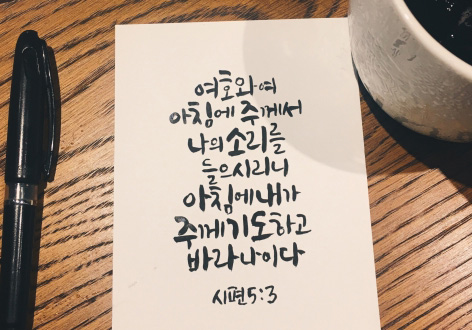 여호와여
아침에 주께서
나의 소리를
들으시리니
아침에 내가
주께 기도하고
바라나이다
시편 5:3